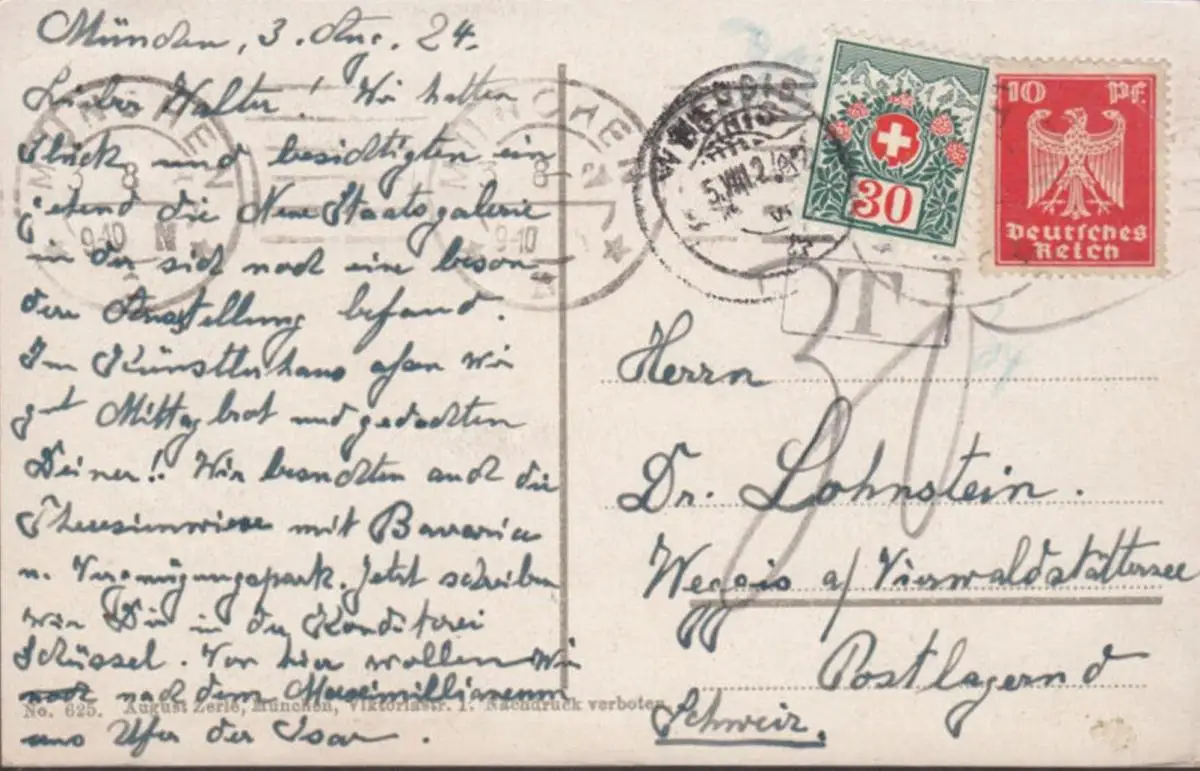 München, 3. Aug. 24.
Lieber Walter! Wir hatten
Glück und besichtigten ein
gehend die Neue Staatsgalerie
in der sich noch eine beson-
dere Ausstellung befand.
Im Künstlerhaus assen wir
gut Mittagbrot und gedachten
Deiner! Wir besuchten auch die
Theresienwiese mit Bavaria
u. Vergnügungspark. Jetzt schreiben
wir Dir in der Konditorei
Schüssel. Von hier wollen wir
noch nach dem Maximillianeum
ans Ufer der Isar.
No. 625. August Zerle, München, Viktoriastr. 1. Nachdruck verboten.
MÜNCHEN
9-10 N
MÜNCHEN
9-10
WEGGIS
5.VIII.2
30
10 Pf.
Deutsches
Reich
T
30
Herrn
Dr. Lohnstein.
Weggis a/ Vierwaldstättersee
Postlagernd
Schweiz.